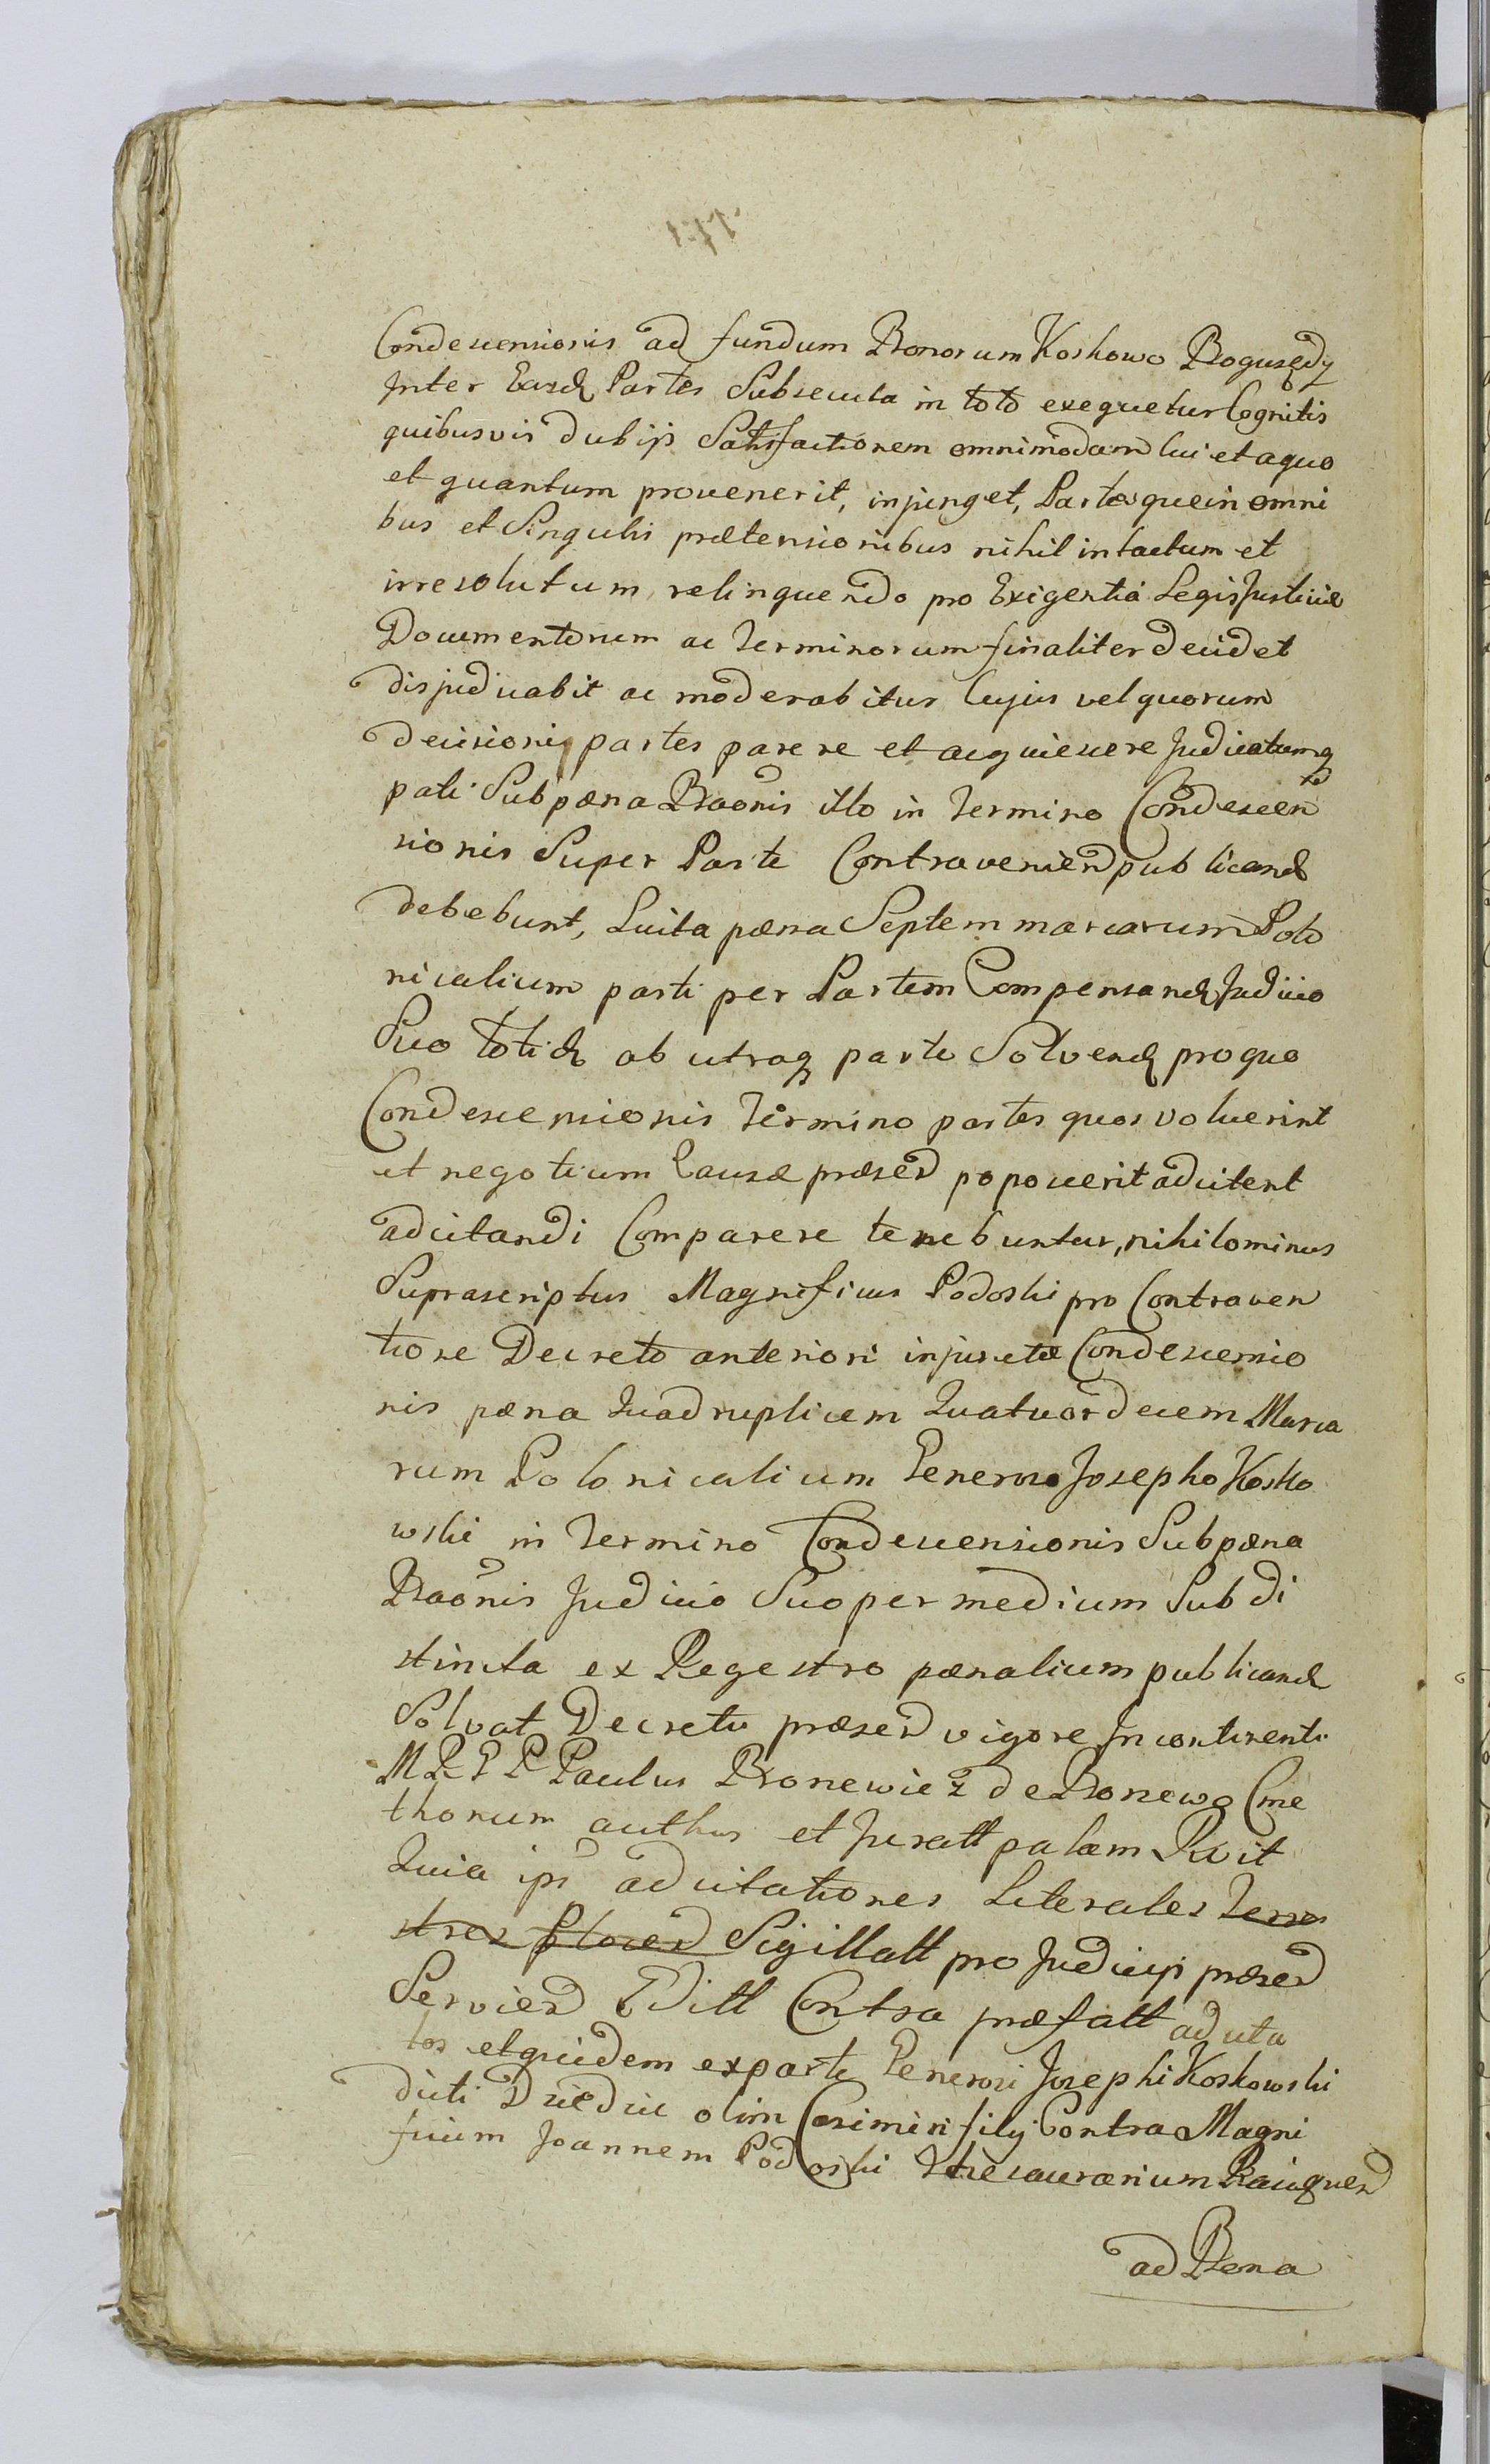 Condescensionis ad fundum Bonorum Koskowo Bogusędy
Inter Easd Partes Subsecuta in toto exequetur Cognitis
quibusvis dubijs Satisfactionem omnimodam Cui et a quo
et quantum provenerit, injunget, Partesque in omni
bus et Singulis prætensionibus nihil intactum et
irresolutum relinquendo pro Exigentia Legis Justitiæ
Documentorum ac Terminorum finaliter decidet
disjudicabit ac moderabitur Cujus vel quorum
decisioni partes parere et acquiescere Judicatumq
pati Sub pæna Baonis illo in Termino Condescen
sionis Super Parte Contravenien publicand
debebunt, Luita pæna Septem marcarum Polo
nicalium parti per Partem Compensand Judicio
Suo totid ab utraq parte Solvend pro quo
Condescensionis Termino partes quos voluerint
et negotium Causæ præsen poposcerit adcitent
adcitandi Comparere tenebuntur, nihilominus
Suprascriptus Magnificus Podoski pro Contraven
tione Decreto anteriori injunctæ Condescensio
nis pæna Quadruplicem Quatuordecem Marca
rum Polonicalium Generoso Josepho Kosko
wski in Termino Condescensionis Sub pæna
Baonis Judicio Suo per medium Subdi
stincta ex Regestro pænalium publicand
Solvat Decreti præsen vigore In continenti
M R P P Paulus Bronewicz de Bronewo Cme
thonum authus et Juratt palam Rcvit
Quia ips adcitationes Literales Terre
stres Plocen Sigillatt pro Judicijs præsen
Servien Editt Contra præfatt adcita
tos et quidem ex parte Generosi Josephi Koskowski
dicti Dziedzic olim Casimiri filij Contra Magni
ficum Joannem Podoski Thesaurarium Raciąznen
ad Bona